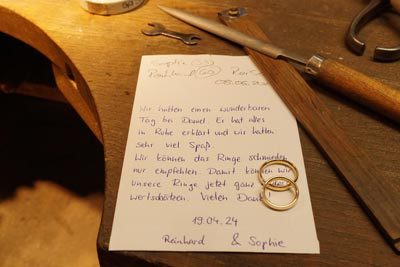 Sophie (53)
Reinhard (62)
08.06.
Wir hatten einen wunderbaren
Tag bei Daniel. Er hat alles
in Ruhe erklärt und wir hatten
sehr viel Spaß.
Wir können das Ringe schmieden
nur empfehlen. Damit können wir
unsere Ringe jetzt ganz
wertschätzen. Vielen Dank!
19.04.24
Reinhard & Sophie